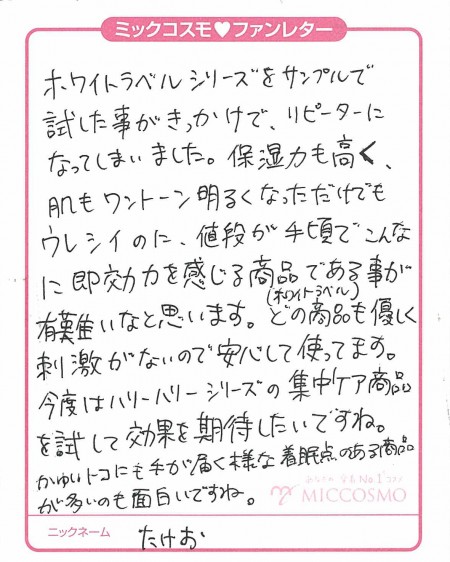 ミックコスモ♥ファンレター
ホワイトラベルシリーズをサンプルで
試した事がきっかけで、リピーターに
なってしまいました。保湿力も高く、
肌もワントーン明るくなっただけでも
ウレシイのに、値段が手頃でこんな
に即効力を感じる商品である事が
有難いなと思います。(ホワイトラベル)どの商品も優しく
刺激がないので安心して使ってます。
今度はハリーハリーシリーズの集中ケア商品
を試して効果を期待したいですね。
かゆいトコにも手が届く様な着眼点のある商品
が多いのも面白いですね。
MICCOSMO
ニックネーム たけお